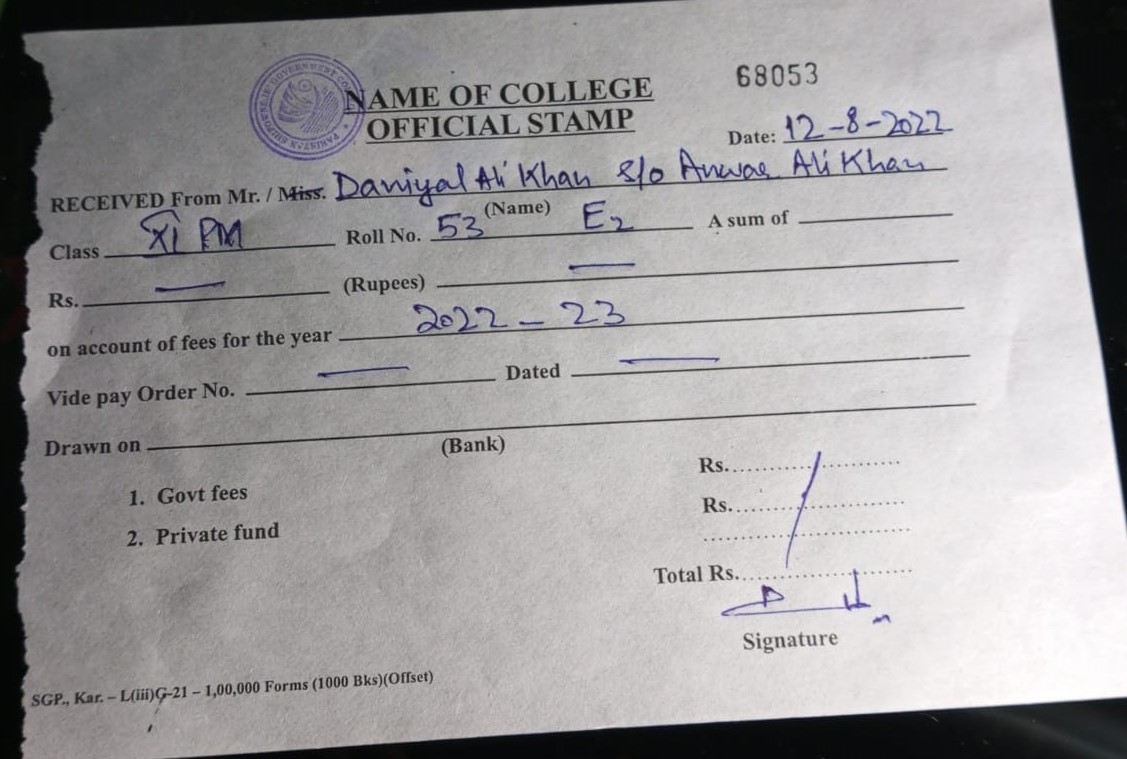 68053
NAME OF COLLEGE
OFFICIAL STAMP
Date: 12-8-2022
RECEIVED From Mr. / Miss. Daniyal Ali Khan S/o Anwar Ali Khan
(Name)
Class XI PM Roll No. 53 E2 A sum of
Rs. — (Rupees) —
on account of fees for the year 2022-23
Vide pay Order No. — Dated —
Drawn on
(Bank)
1. Govt fees Rs.
2. Private fund Rs.
Total Rs.
Signature
SGP., Kar. – L(iii)G-21 – 1,00,000 Forms (1000 Bks)(Offset)